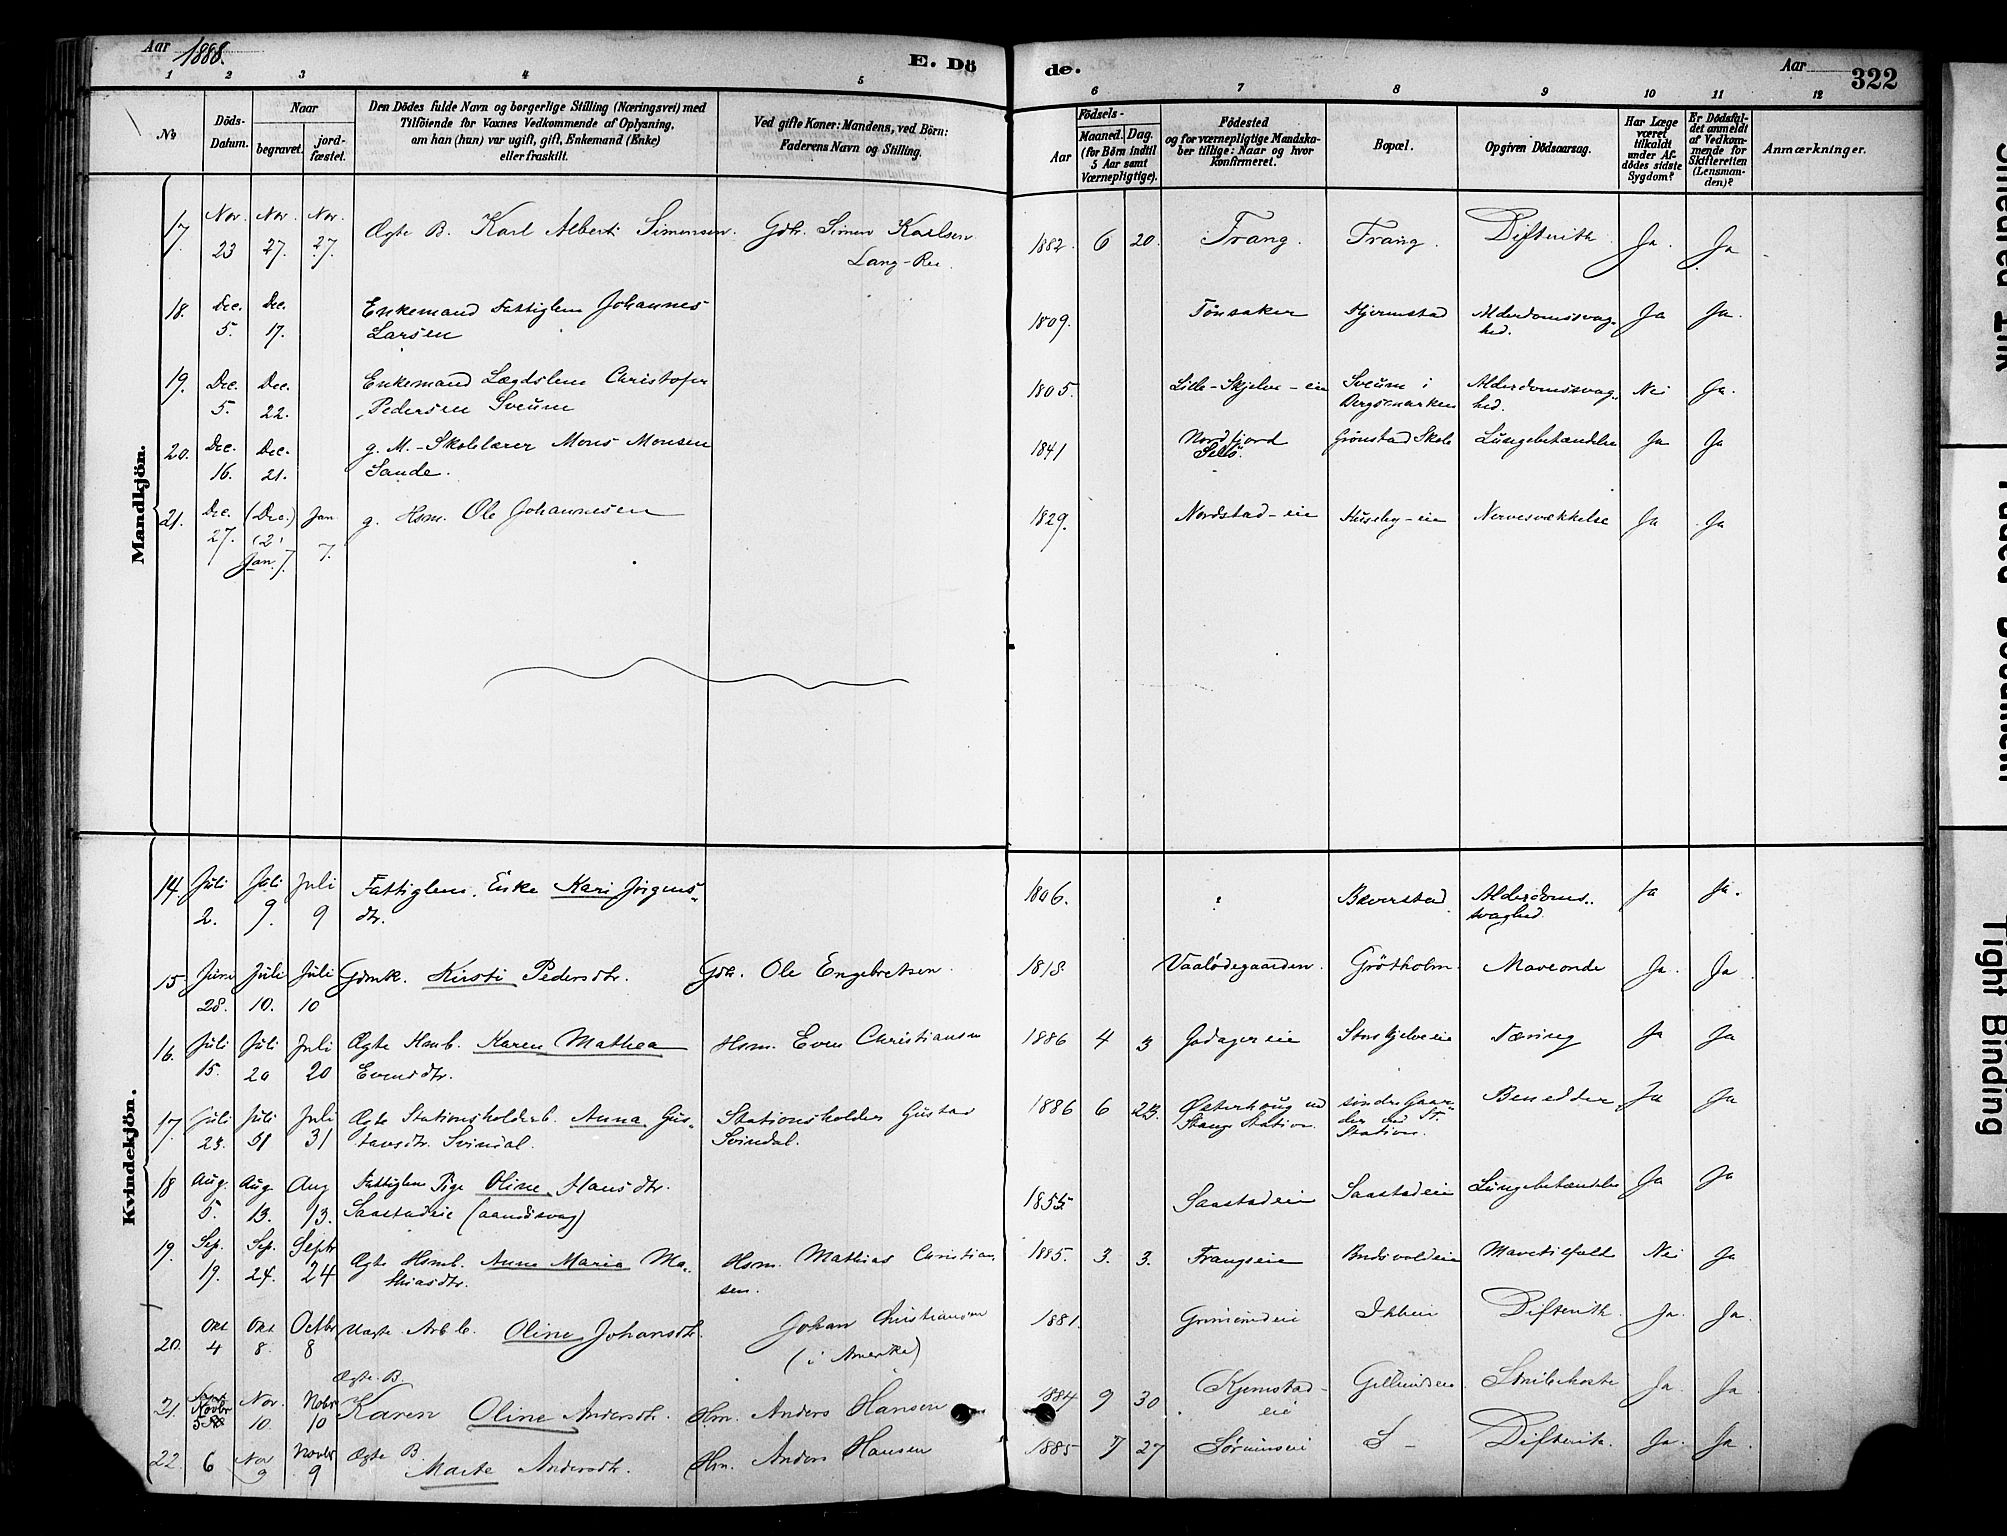 Aar 1888.
E. Dö
de.
Aar
322
1 2 3 4 5 6 7 8 9 10 11 12
No
Döds-
Datum.
Naar
begravet.
jord-
fæstet.
Den Dödes fulde Navn og borgerlige Stilling (Næringsvei) med
Tilföiende for Voxnes Vedkommende af Oplysning,
om han (hun) var ugift, gift, Enkemand (Enke)
eller fraskilt.
Ved gifte Koner: Mandens, ved Börn:
Faderens Navn og Stilling.
Födsels-
Aar
Maaned. Dag.
(for Börn indtil
5 Aar samt
Værnepligtige).
Födested
og for værnepligtige Mandska-
ber tillige: Naar og hvor
konfirmeret.
Bopæl.
Opgiven Dödsaarsag.
Har Læge
været
tilkaldt
under Af-
dödes sidste
Sygdom?
Er Dödsfal-
det anmeldt
af Vedkom-
mende for
Skifteretten
(Lensman-
den)?
Anmærkninger.
Mandkjön.
17 Nov. 23 Nov. 27. Nov. 27. Ægte B. Karl Albert Simensen. Gdbr. Simen Karlsen
Lang-Ree. 1882. 6 20. Frang. Frang. Difterith Ja. Ja
18. Dec. 5. Dec. 17. Enkemand Fattiglem Johannes
Larsen 1809. Tønsaker Hjermstad Alderdomssvag-
hed. Ja Ja.
19. Dec. 5. Dec. 22. Enkemand Lægdslem Christofer
Pedersen Sveum 1805. Lille-Skjelve-eie Sveum i
Bergsmarken Alderdomssvag-
hed. Nei Ja.
20. Dec. 16. Dec. 21. g. M. - Skolelærer Mons Monsen
Sande. 1841 Nordfjord Grønstad Skole Lungebetændelse Ja Ja
21. Dec. 27. (Dec.)
Jan. 7. Jan 7. g. Hsm. Ole Johannesen 1829. Nordstad-eie Huseby-eie Nervesvækkelse Ja Ja
Kvindekjön.
14. Juli 2. Juli 9. Juli 9 Fattiglem. Enke Kari Jørgens-
dtr. 1806. ? Beverstad Alderdoms-
svaghed. Ja Ja.
15 Juni 28. Juli 10. Juli 10 Gdmk. Kirsti Pedersdtr. Gdr. Ole Engebretsen. 1818 Vaalødegaarden. Grøtholm. Maveonde Ja. Ja
16. Juli 15. Juli 20 Juli 20 Ægte Hsmb. Karen Mathea
Evensdtr. Hsm. Even Christiansen 1886 4 3 Jadagereie Storskjelveeie Tæring Ja Ja
17. Juli Juli 31 Juli 31 Ægte Stationsholderb. Anna Gus-
tavsdtr. Svindal. Stationsholder Gustav
Svindal. 1886 6 Østerhoug ved
Stange Station. søndre Gaar-
der ved St.
Station. Benedder Ja Ja
18 Aug. 5. Aug. 13. Aug 13. Fattiglem Pige Oline Hansdtr.
Saastadeie (aandssvag) 1855 Saastadeie Saastadeie Lungebetændelse Ja Ja
19. Sep. 19. Sep. 24. Septr 24 Ægte Hsmb. Anne Marie Ma-
thiasdtr. Hsm. Mathias Christian-
sen. 1885. 3. 3. Frangseie Budsvoldeie Mavetilfælde Nei Ja
20. Okt 4 Okt 8. Octbr 8 Uægte Arbb. Oline Johansdtr. Johan Christiansen
(i Amerika) 1881. Grimerudeie Difterith Ja. Ja.
21. Novbr 5 Nov. 10. Nobr 10 Ægte B.
Karen Oline Andersdtr. Hm. Anders Hansen 1884 9 30 Kjemstad-
eie Gillundeie Strubehoste Ja. Ja
22. 6 Nov 9 Novbr 9 Ægte B.
Marte Andersdtr. Hm. Anders Hansen 1885 7 27 Sørumseie Difterit. Ja. Ja.
Faded Document
Tight Binding